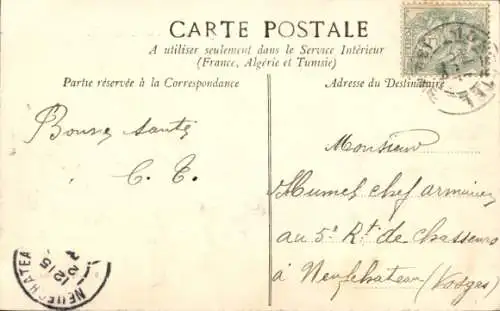 CARTE POSTALE
A utiliser seulement dans le Service Intérieur
(France, Algérie et Tunisie)
Partie réservée à la Correspondance
Adresse du Destinataire
Bonne santé
C. T.
Monsieur
Humel chef armurier
au 5e Rt de chasseurs
à Neufchateau (Vosges)
NEUFCHATEA
12 15